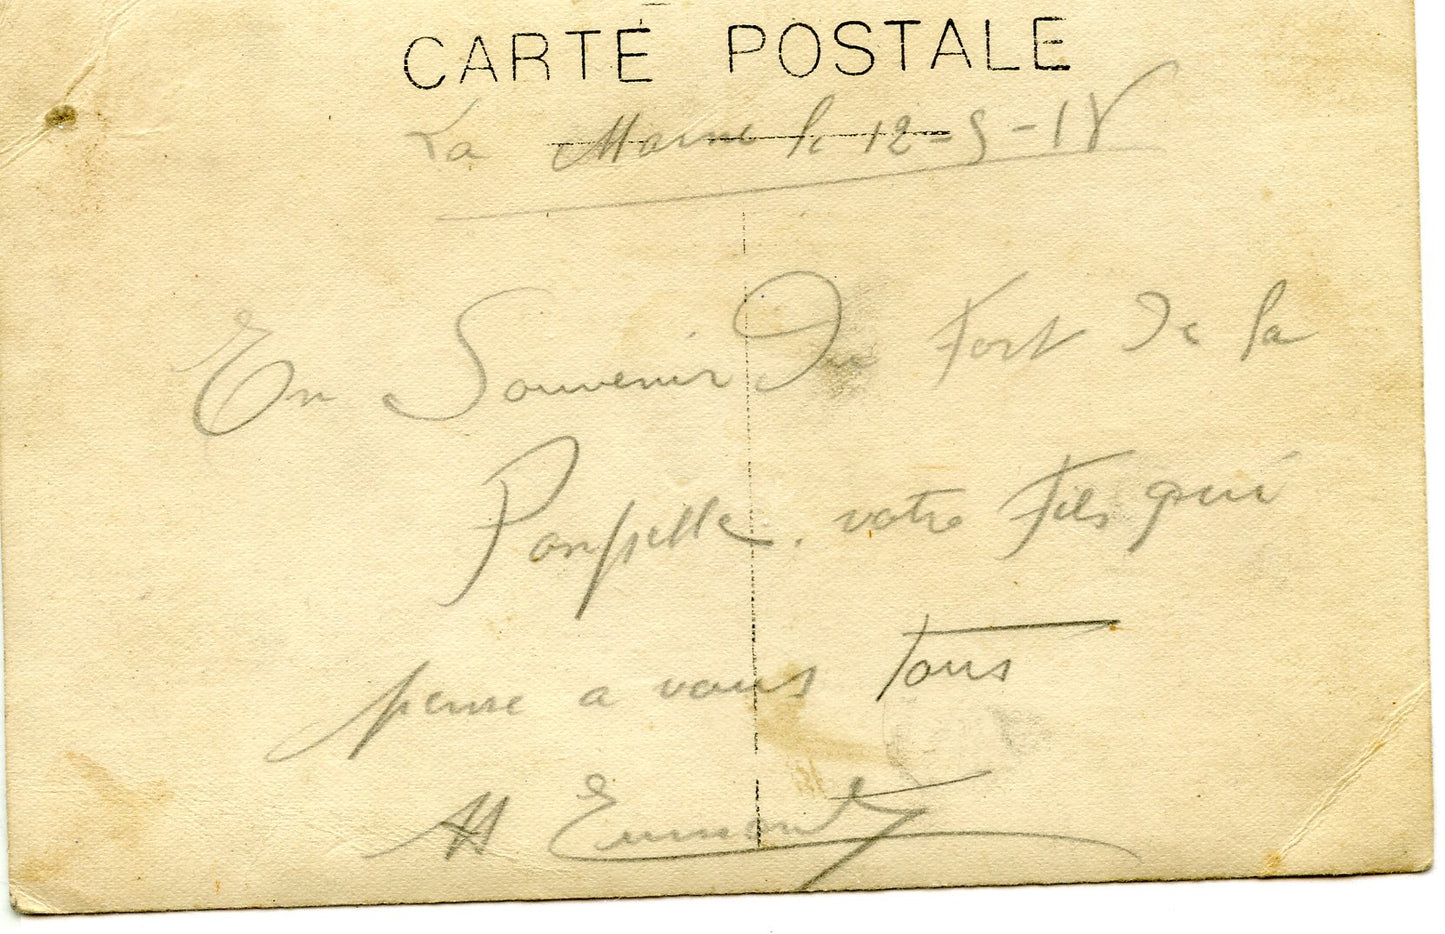 CARTE POSTALE
La Marne le 12-9-18
En Souvenir Du Fort De la
Pompelle. votre Fils qui
pense a vous tous